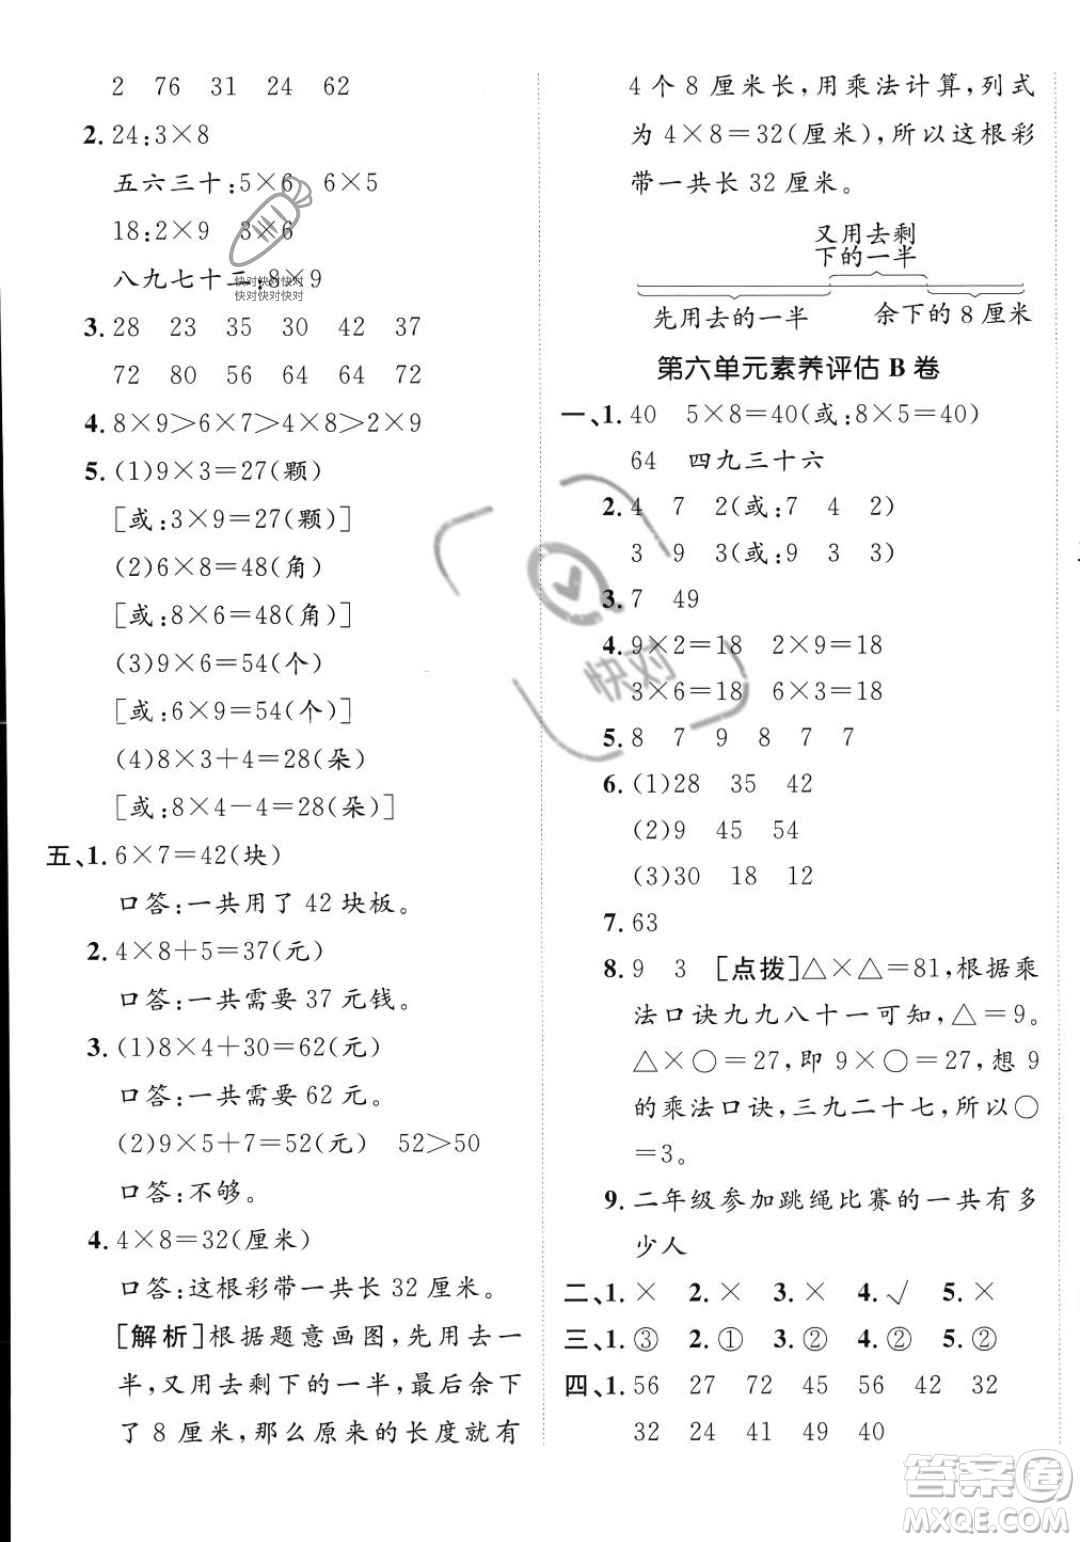 2 76 31 24 62
2. 24:3×8
五六三十:5×6 6×5
18:2×9 3×6
八九七十二:8×9
3. 28 23 35 30 42 37
72 80 38 64 72
4. 8×9＞6×7＞4×8＞2×9
5. (1)9×3=27(颗)
[或:3×9=27(颗)]
(2)6×8=48(角)
[或:8×6=48(角)]
(3)9×6=54(个)
[或:6×9=54(个)]
(4)8×3+4=28(朵)
[或:8×4-4=28(朵)]
五、1. 6×7=42(块)
口答:一共用了 42 块板。
2. 4×8+5=37(元)
口答:一共需要 37 元钱。
3. (1)8×4+30=62(元)
口答:一共需要 62 元。
(2)9×5+7=52(元) 52＞50
口答:不够。
4. 4×8=32(厘米)
口答:这根彩带一共长 32 厘米。
[解析]根据题意画图,先用去一
半,又用去剩下的一半,最后余下
了 8 厘米,那么原来的长度就有
4 个 8 厘米长,用乘法计算,列式
为 4×8=32(厘米),所以这根彩
带一共长 32 厘米。
又用去剩
下的一半
先用去的一半 余下的 8 厘米
第六单元素养评估 B 卷
一、1. 40 5×8=40(或:8×5=40)
64 四九三十六
2. 4 7 2(或:7 4 2)
3 9 3(或:9 3 3)
3. 7 49
4. 9×2=18 2×9=18
3×6=18 6×3=18
5. 8 7 9 8 7 7
6. (1)28 35 42
(2)9 45 54
(3)30 18 12
7. 63
8. 9 3 [点拨]△×△=81,根据乘
法口诀九九八十一可知,△=9。
△×○=27,即 9×○=27,想 9
的乘法口诀,三九二十七,所以○
=3。
9. 二年级参加跳绳比赛的一共有多
少人
二、1. × 2. × 3. × 4. √ 5. ×
三、1. ③ 2. ① 3. ② 4. ② 5. ②
四、1. 56 27 72 45 56 42 32
32 24 41 49 40
快对快对快对
快对快对快对
快对
答案圈
MXQE.COM